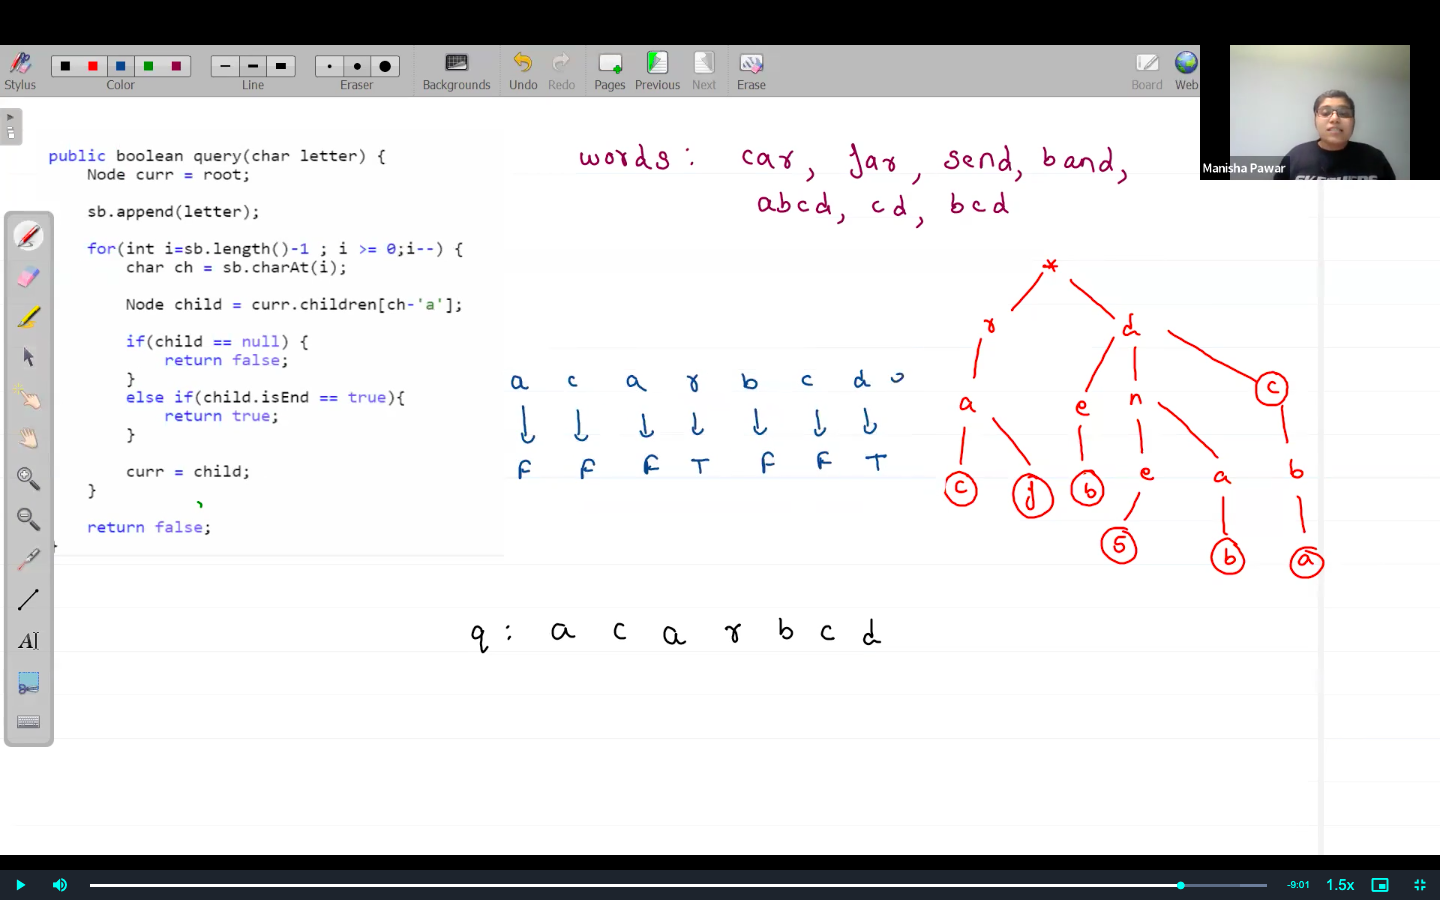 Stylus
Color
Line
Eraser
Backgrounds
Undo
Redo
Pages
Previous
Next
Erase
Board
Web
Manisha Pawar
public boolean query(char letter) {
Node curr = root;
sb.append(letter);
for(int i=sb.length()-1 ; i >= 0;i--) {
char ch = sb.charAt(i);
Node child = curr.children[ch-'a'];
if(child == null) {
return false;
}
else if(child.isEnd == true){
return true;
}
curr = child;
}
return false;
}
words : car, jar, send, band,
abcd, cd, bcd
a c a r b c d
F F F T F F T
*
r d
a e n c
c j b e a b
s b a
q : a c a r b c d
-9:01
1.5x